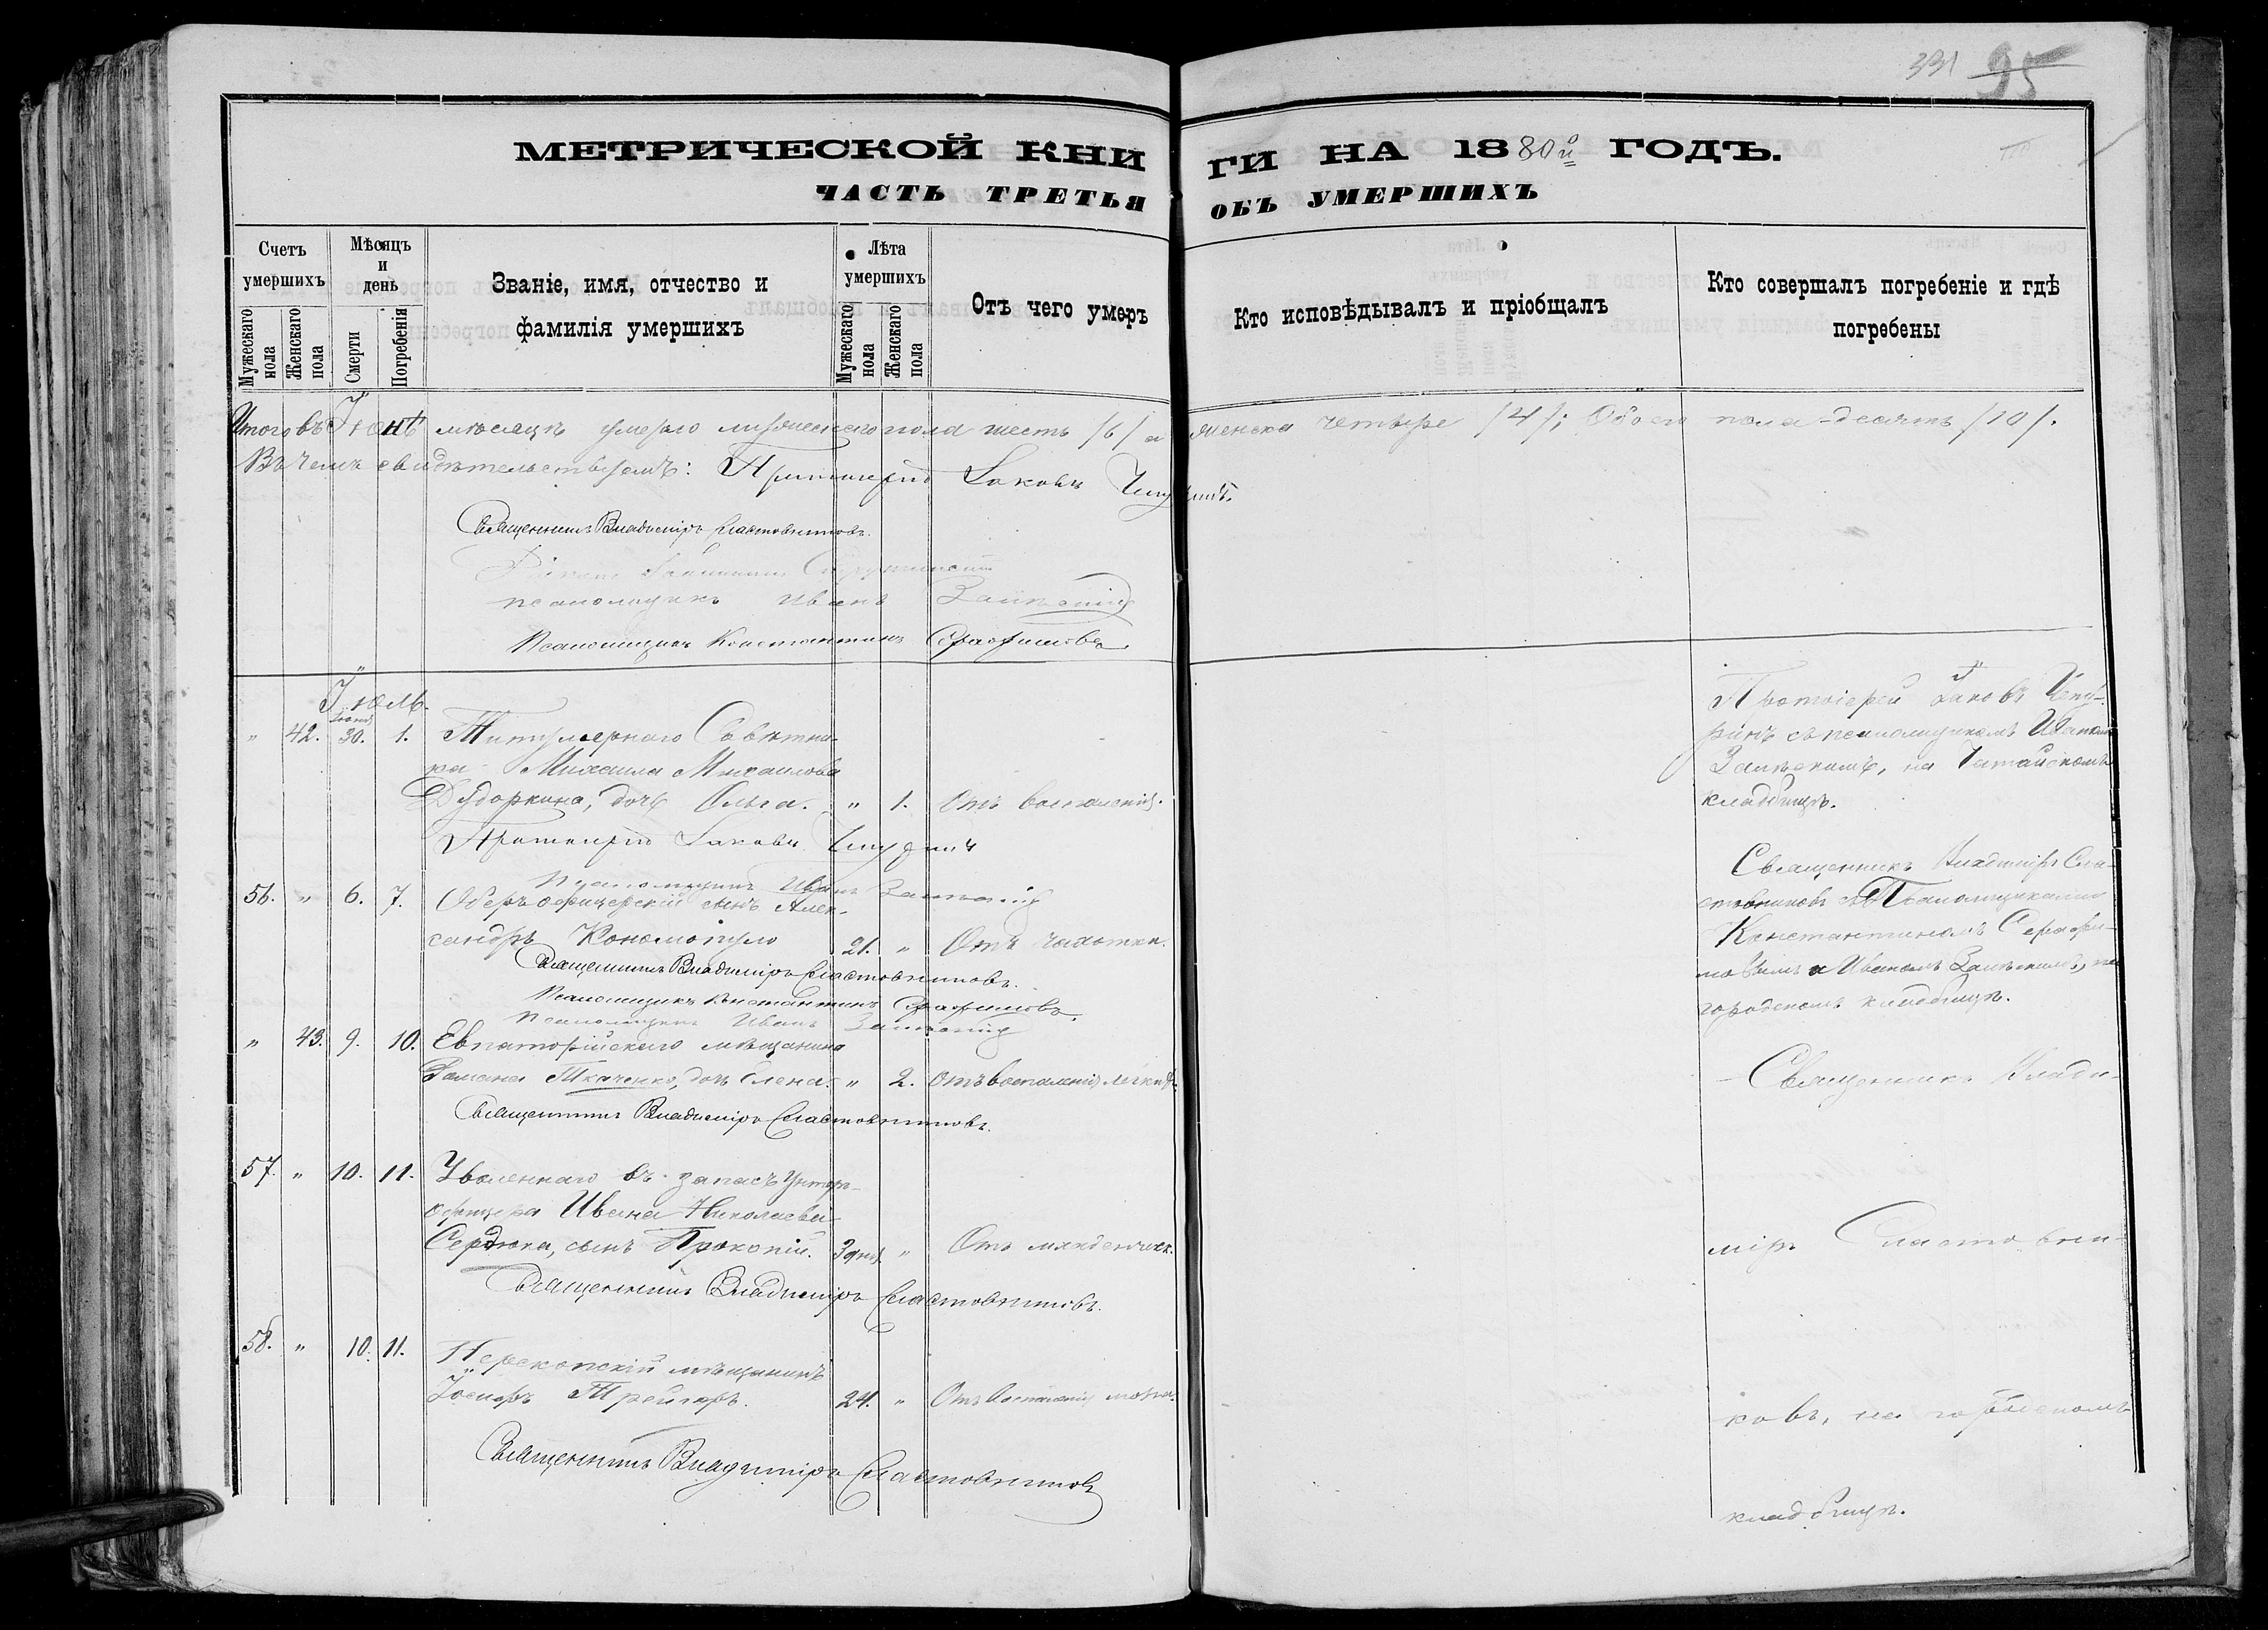 331 95
МЕТРИЧЕСКОЙ КНИГИ НА 1880й ГОДЪ.
ЧАСТЬ ТРЕТЬЯ ОБЪ УМЕРШИХЪ
Счетъ умершихъ
Мужескаго пола
Женскаго пола
Мѣсяцъ и день
Смерти
Погребенія
Званіе, имя, отчество и фамилія умершихъ
Лѣта умершихъ
Мужескаго пола
Женскаго пола
Отъ чего умеръ
Кто исповѣдывалъ и пріобщалъ
Кто совершалъ погребеніе и гдѣ погребены
Итого въ Іюнѣ мѣсяцѣ умерло мужескаго пола шесть /6/ а женска четыре /4/; Обоего пола - десять /10/.
Въ чемъ свидѣтельствуемъ: Протоіерей Іаковъ Чепуринъ.
Священникъ Владиміръ Сластовниковъ.
псаломщикъ Иванъ
Псаломщикъ Константинъ Серафимовъ.
Іюль.
" 42. 30. 1. Титулярнаго Совѣтни-
ка Михаила Михаилова
Дудоркина, дочь Ольга. " 1. Отъ воспаленія.
Протоіерей Іаковъ Чепуринъ
Псаломщикъ Иванъ
56. " 6. 7. Оберъ офицерскій сынъ Алек-
сандръ Кономопуло 21. " Отъ чахотки.
Священникъ Владиміръ Сластовниковъ.
Псаломщикъ Константинъ Серафимовъ.
Псаломщикъ Иванъ
" 43. 9. 10. Евпаторійскаго мѣщанина
Романа Ткаченко, дочь Елена. " 2. Отъ воспаленія легкихъ.
Священникъ Владиміръ Сластовниковъ.
57. " 10. 11. Уволеннаго въ запасъ унтеръ-
офицера Ивана Николаева
Сердюка, сынъ Прокопій. 3 дня. " Отъ младенческ.
Священникъ Владиміръ Сластовниковъ.
58. " 10. 11. Перекопскій мѣщанинъ
Іосифъ 24. " Отъ воспаленія мозга.
Священникъ Владиміръ Сластовниковъ
Протоіерей Іаковъ Чепу-
ринъ съ псаломщикомъ Иваномъ
на
кладбищѣ.
Священникъ Владиміръ Сла-
стовниковъ съ Псаломщиками
Константиномъ Серафи-
мовымъ и Иваномъ на
городскомъ кладбищѣ.
Священникъ Влади-
міръ Сластовни-
ковъ, на городскомъ
кладбищѣ.